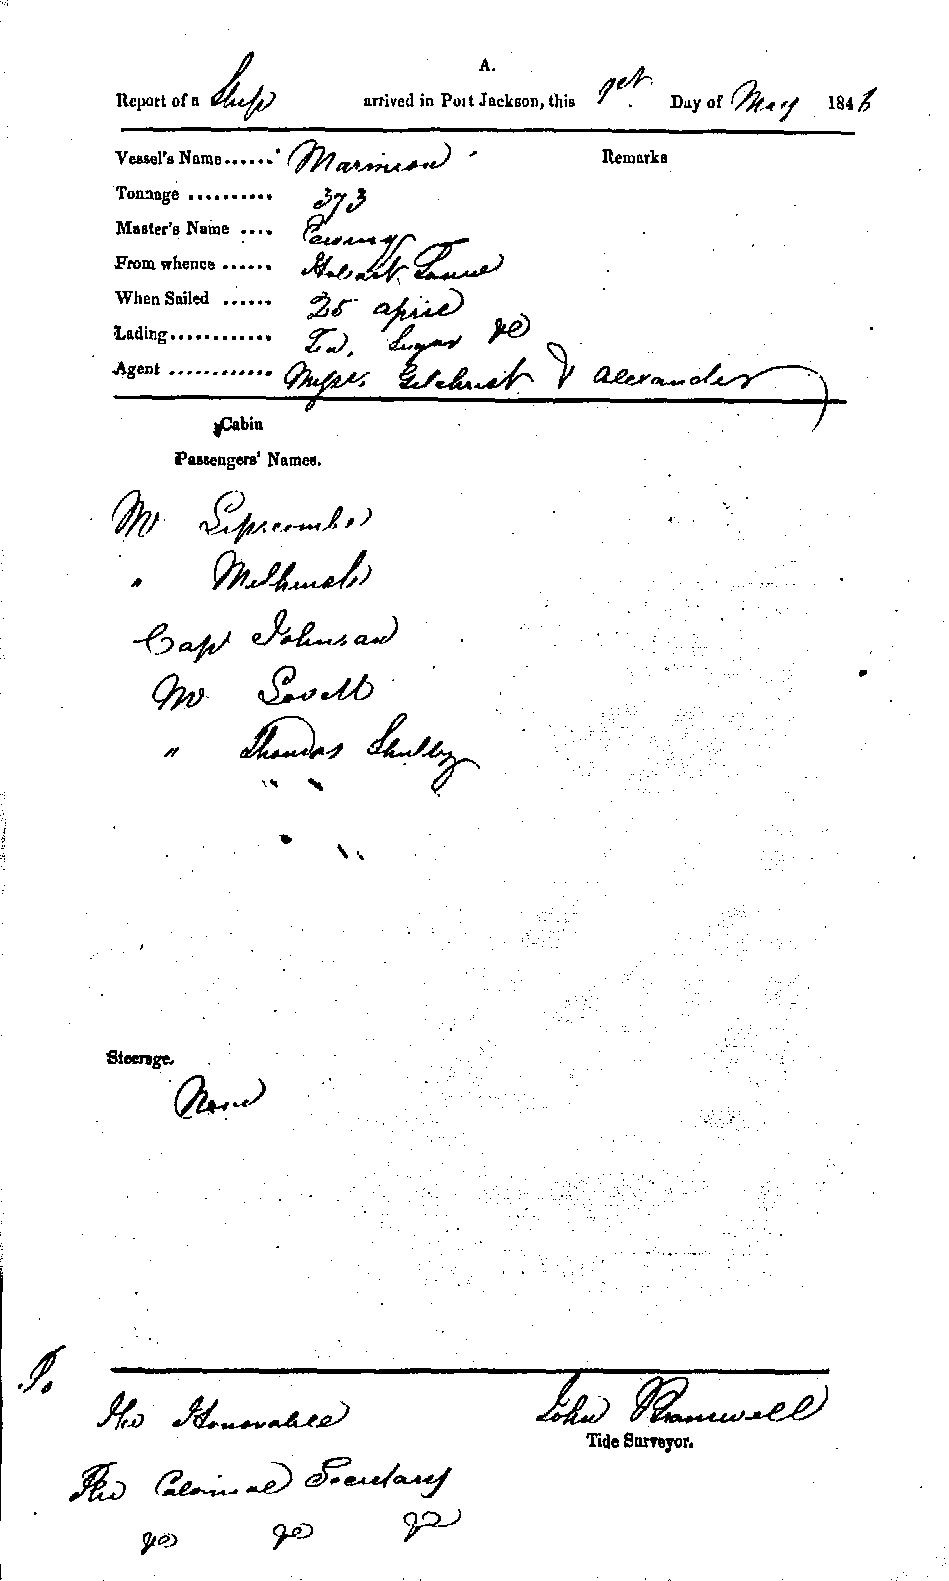 A.
Report of a Ship arrived in Port Jackson, this 1st Day of May 1846
Vessel's Name...... Marmion Remarks
Tonnage .......... 373
Master's Name ....
From whence ...... Hobart Town
When Sailed ...... 25 April
Lading............ Tea, Sugar &c
Agent ............ Messrs. Gilchrist & Alexander
Cabin
Passengers' Names.
Mr Lipscombe
"
Capt Johnson
Mr Lovett
" Thomas
Steerage.
None
To
The Honorable John Bramwell
Tide Surveyor.
The Colonial Secretary
&c &c &c